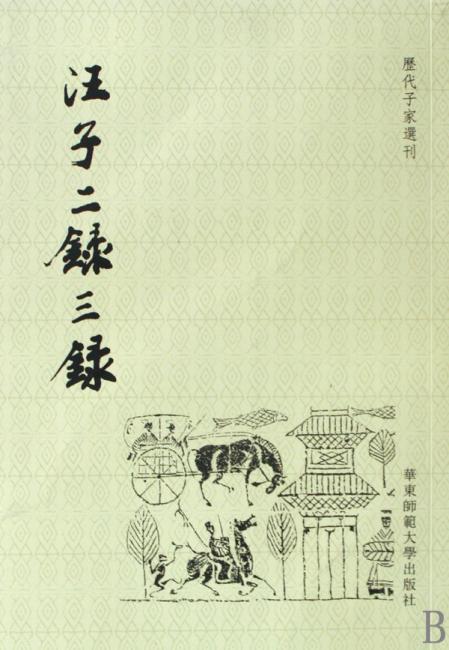 歷代子家選刊
汪子二録三録
華東師範大學出版社
B